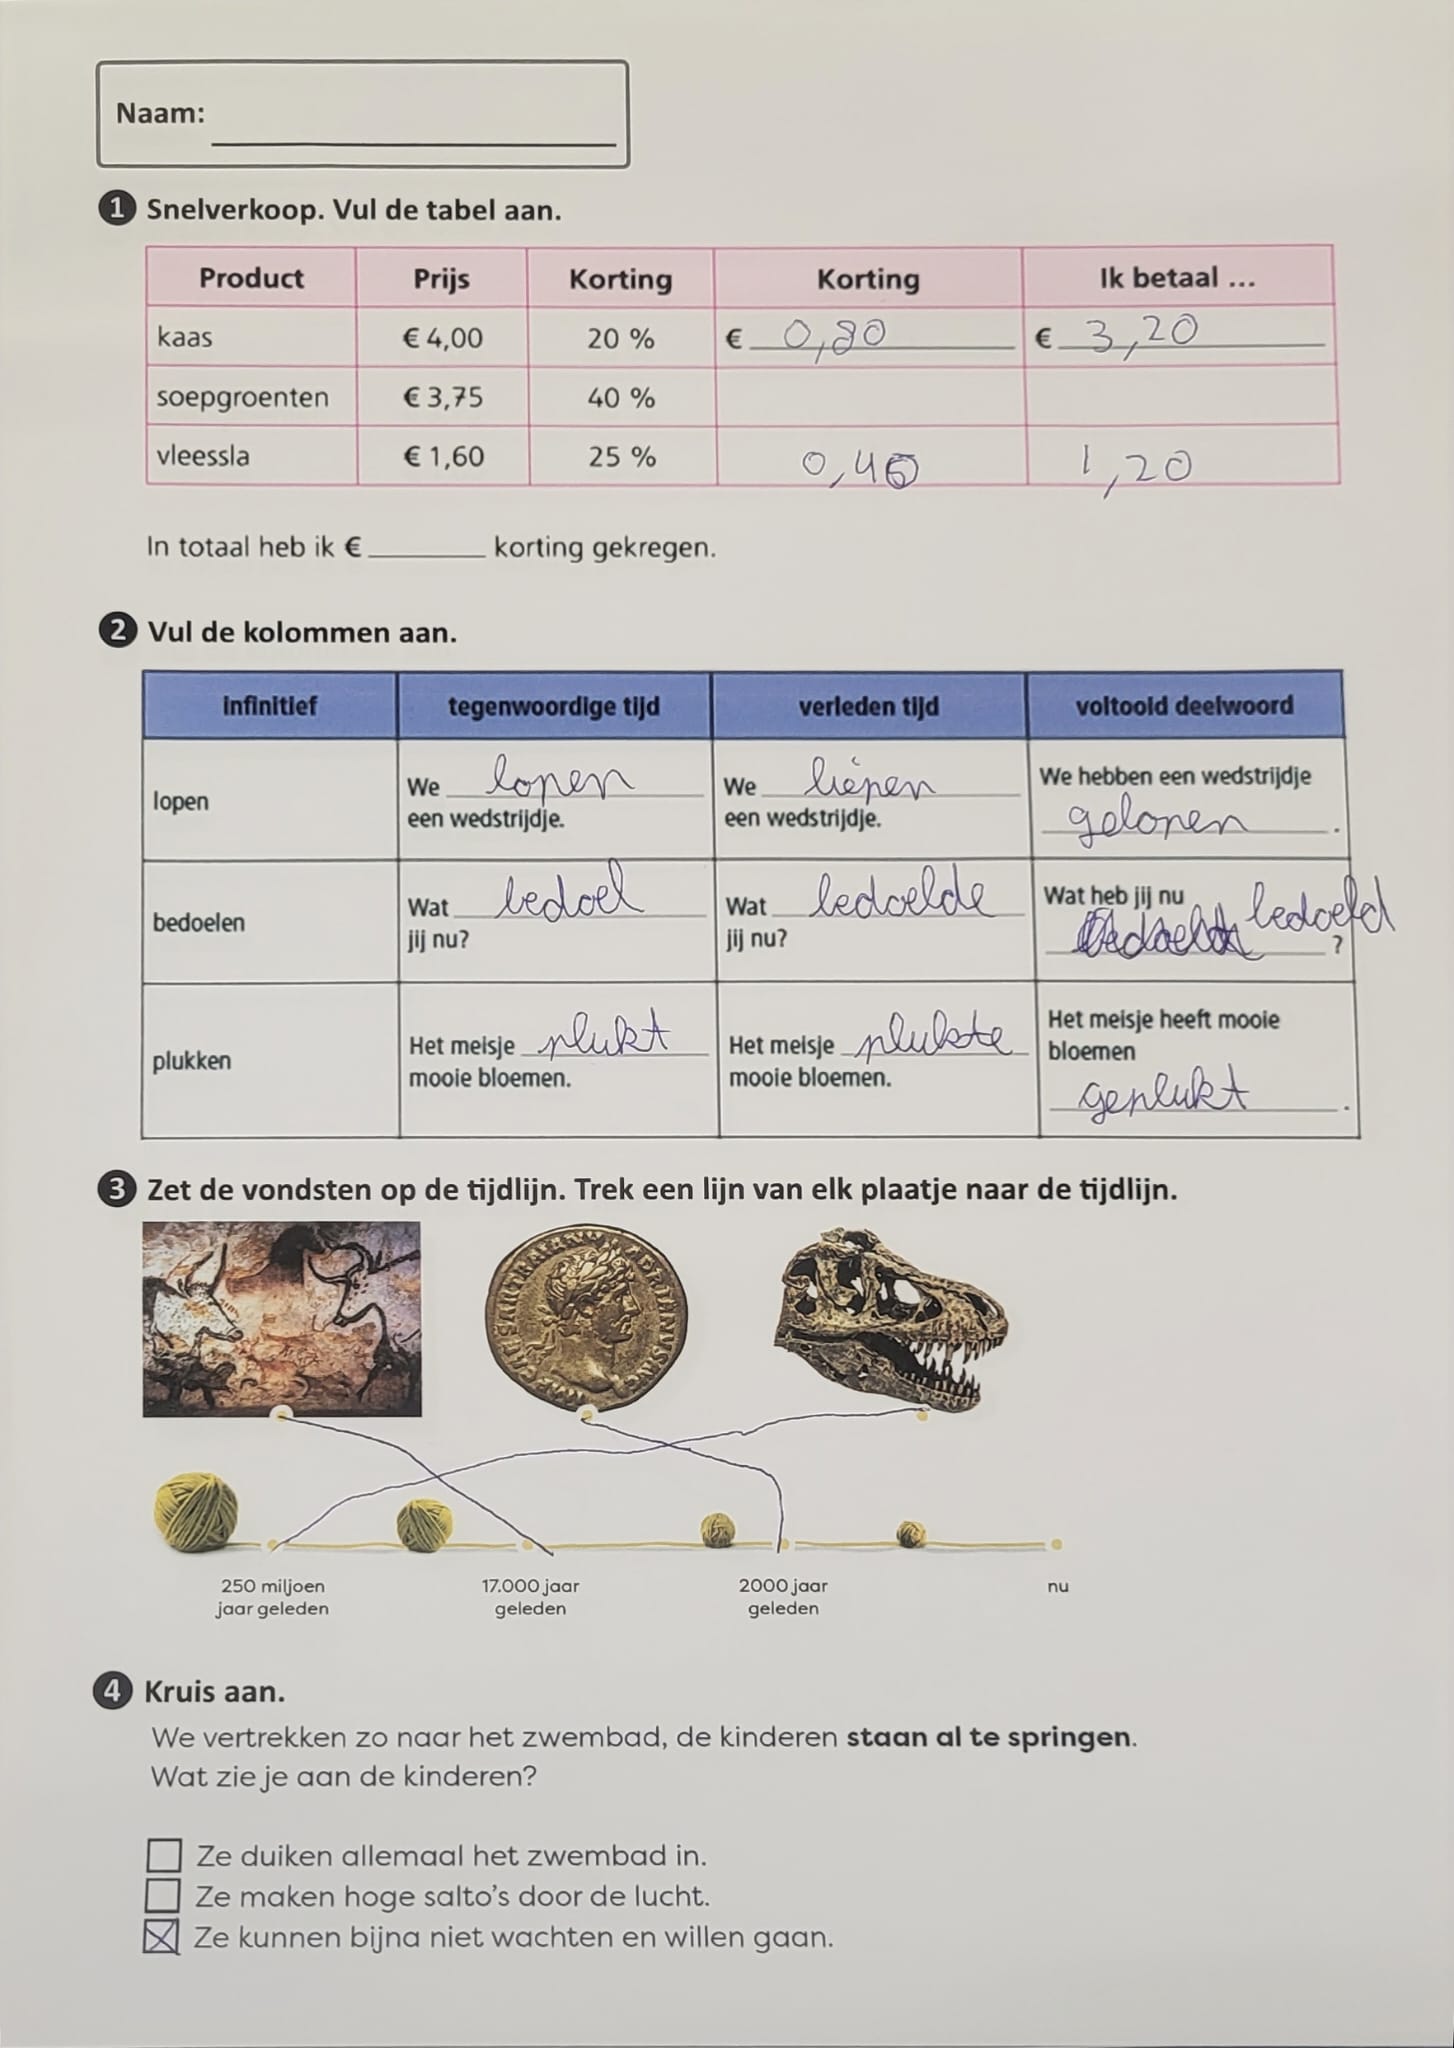 Naam:
1 Snelverkoop. Vul de tabel aan.
Product Prijs Korting Korting Ik betaal ...
kaas € 4,00 20 % € 0,80 € 3,20
soepgroenten € 3,75 40 %
vleessla € 1,60 25 % 0,40 1,20
In totaal heb ik € korting gekregen.
2 Vul de kolommen aan.
infinitief tegenwoordige tijd verleden tijd voltooid deelwoord
lopen
We lopen
een wedstrijdje.
We liepen
een wedstrijdje.
We hebben een wedstrijdje
gelopen .
bedoelen
Wat bedoel
jij nu?
Wat bedoelde
jij nu?
Wat heb jij nu
bedoeld ?
plukken
Het meisje plukt
mooie bloemen.
Het meisje plukte
mooie bloemen.
Het meisje heeft mooie
bloemen
geplukt .
3 Zet de vondsten op de tijdlijn. Trek een lijn van elk plaatje naar de tijdlijn.
250 miljoen
jaar geleden
17.000 jaar
geleden
2000 jaar
geleden
nu
4 Kruis aan.
We vertrekken zo naar het zwembad, de kinderen staan al te springen.
Wat zie je aan de kinderen?
Ze duiken allemaal het zwembad in.
Ze maken hoge salto's door de lucht.
Ze kunnen bijna niet wachten en willen gaan.